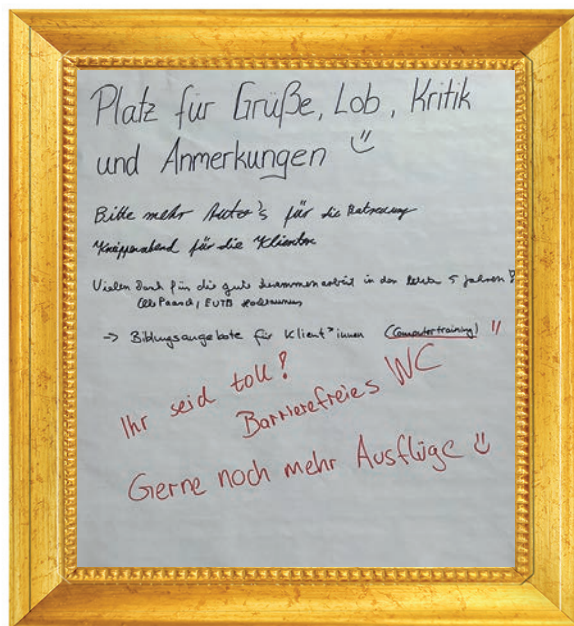 Platz für Grüße, Lob, Kritik
und Anmerkungen
Bitte mehr Auto's für die Betreuung
Kneippenabend für die Klienten
Vielen Dank für die gute Zusammenarbeit in den letzten 5 Jahren!
EUTB
-> Bildungsangebote für Klient*innen (Computertraining) !!
Ihr seid toll!
Barrierefreies WC
Gerne noch mehr Ausflüge